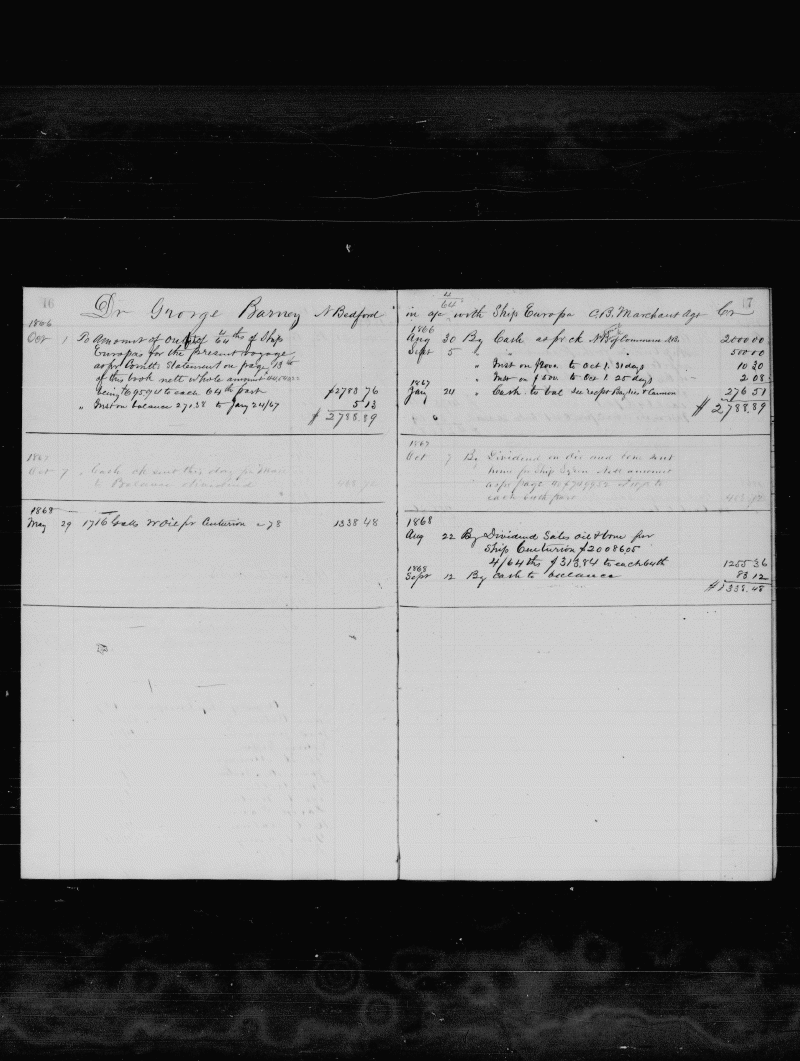 16
Dr George Barney N Bedford
1866
Oct 1 To Amount of outfit 4/64ths of Ship
Europa for the present voyage
as pr Contts Statement on page 13th
of this book nett whole amount
being $695.94 to each 64th part $2783 76
" Inst on balance 271.38 to Jany 24/67 5 13
$ 2788.89
1867
Oct 7 " Cash ck sent this day pr
to Balance dividend
1868
May 29 1716 Galls W Oil pr Centurion @ 78 1338 48
4/64 17
in a/c with Ship Europa A.B. Marchant Agt Cr
1866
Aug 30 By Cash as pr ck N B of Commerce 2000 00
Sept 5 " " 500 00
" Inst on $2000. to Oct 1. 31 days 10 30
" Inst on $500. to Oct 1. 25 days 2.08
1867
Jany 24 " Cash to bal see rcpt 276 51
$ 2,788.89
1867
Oct 7 By Dividend on oil and bone sent
home pr Ship Nett amount
as pr page
each 64th part
1868
Aug 22 By Dividend Sales oil & bone per
Ship Centurion $20086 05
4/64ths $313.84 to each 64th 1255 36
1868
Sept 12 By Cash to balance 83.12
$1338.48